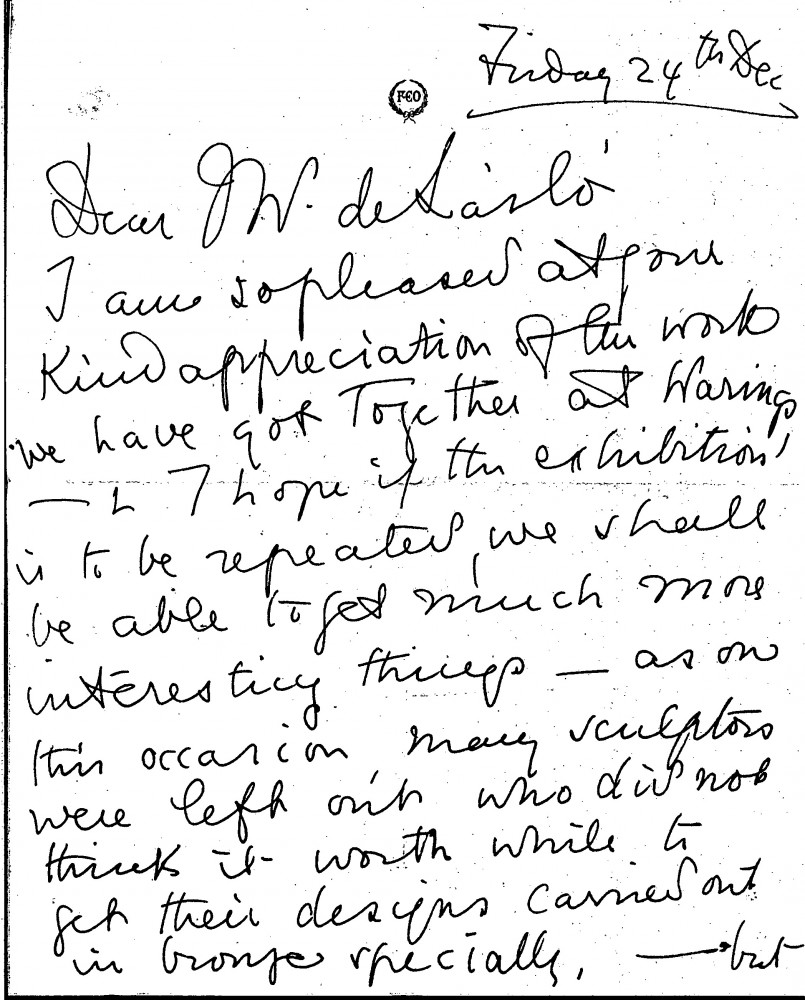 Friday 24th Dec
FCO
Dear Mr. de László
I am so pleased at your
Kind appreciation of the work
we have got Together at Warings
— & I hope if the exhibition
is to be repeated, we shall
be able to get much more
interesting things — as on
this occasion many sculptors
were left out who did not
think it worth while to
get their designs carried out
in bronze specially, — but